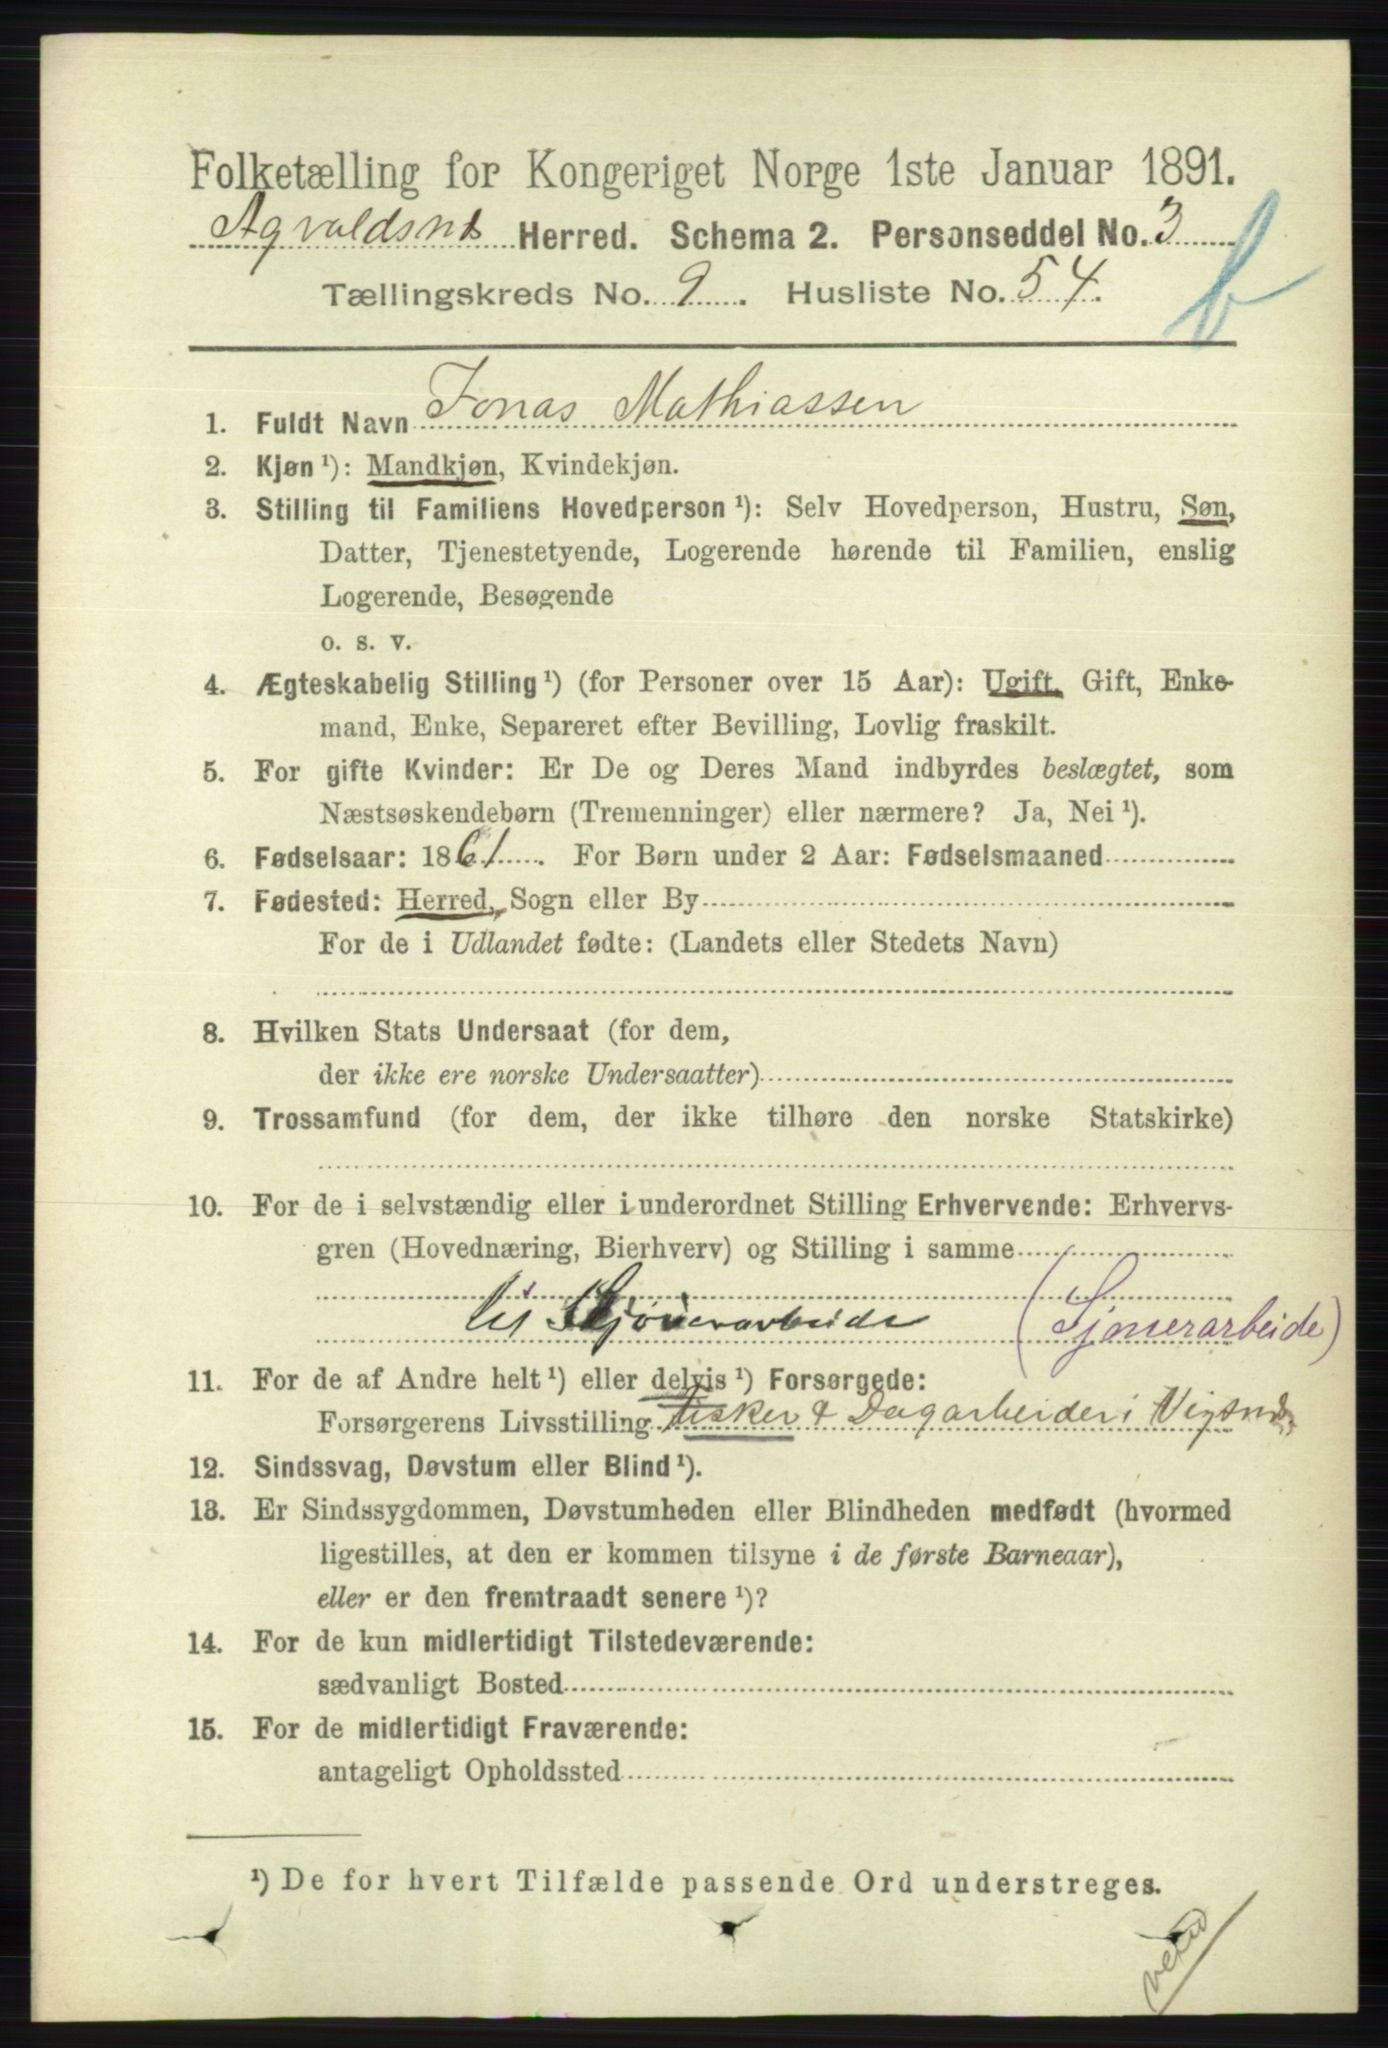 Folketælling for Kongeriget Norge 1ste Januar 1891.
Agvaldsnes Herred. Schema 2. Personseddel No. 3
Tællingskreds No. 9. Husliste No. 54.
1. Fuldt Navn Jonas Mathiassen
2. Kjøn ¹): Mandkjøn, Kvindekjøn.
3. Stilling til Familiens Hovedperson ¹): Selv Hovedperson, Hustru, Søn,
Datter, Tjenestetyende, Logerende hørende til Familien, enslig
Logerende, Besøgende
o. s. v.
4. Ægteskabelig Stilling ¹) (for Personer over 15 Aar): Ugift, Gift, Enke-
mand, Enke, Separeret efter Bevilling, Lovlig fraskilt.
5. For gifte Kvinder: Er De og Deres Mand indbyrdes beslægtet, som
Næstsøskendebørn (Tremenninger) eller nærmere? Ja, Nei ¹).
6. Fødselsaar: 1861. For Børn under 2 Aar: Fødselsmaaned
7. Fødested: Herred, Sogn eller By
For de i Udlandet fødte: (Landets eller Stedets Navn)
8. Hvilken Stats Undersaat (for dem,
der ikke ere norske Undersaatter)
9. Trossamfund (for dem, der ikke tilhøre den norske Statskirke)
10. For de i selvstændig eller i underordnet Stilling Erhvervende: Erhvervs-
gren (Hovednæring, Bierhverv) og Stilling i samme
(Sjouerarbeide)
11. For de af Andre helt ¹) eller delvis ¹) Forsørgede:
Forsørgerens Livsstilling Fisker & Dagarbeider i Vigsnes
12. Sindssvag, Døvstum eller Blind ¹).
13. Er Sindssygdommen, Døvstumheden eller Blindheden medfødt (hvormed
ligestilles, at den er kommen tilsyne i de første Barneaar),
eller er den fremtraadt senere ¹)?
14. For de kun midlertidigt Tilstedeværende:
sædvanligt Bosted
15. For de midlertidigt Fraværende:
antageligt Opholdssted
¹) De for hvert Tilfælde passende Ord understreges.